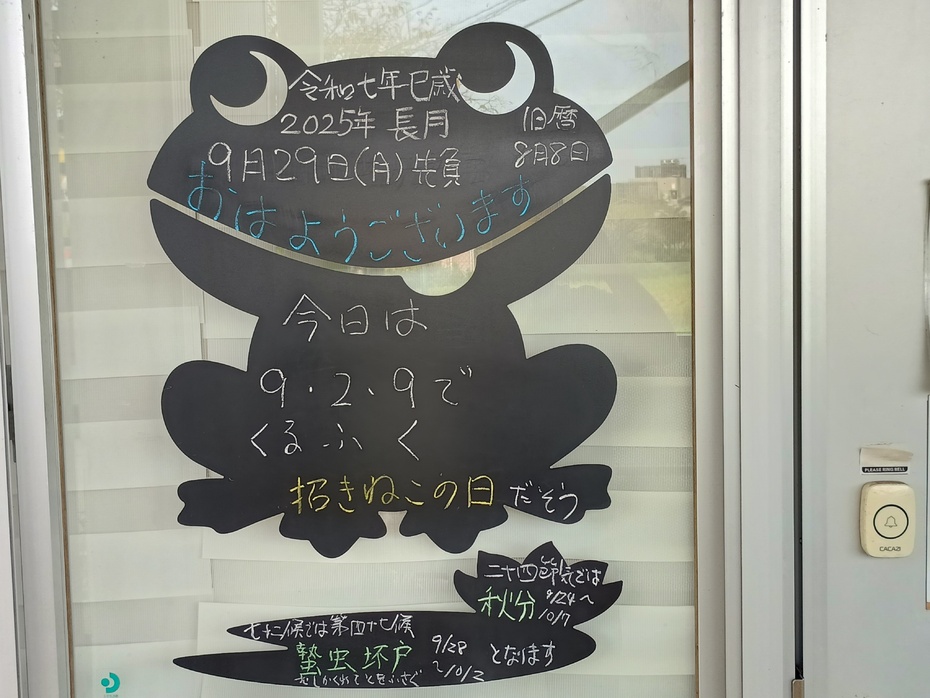 令和七年巳歳
2025年 長月
旧暦
8月8日
9月29日(月) 先負
おはようございます
今日は
9・2・9で
くるふく
招きねこの日だそう
二十四節気では
秋分 9/24〜10/7
七十二候では第四十七候
蟄虫坏戸 9/28〜10/2 となります
むしかくれてとをふさぐ
PLEASE RING BELL
CACAZI